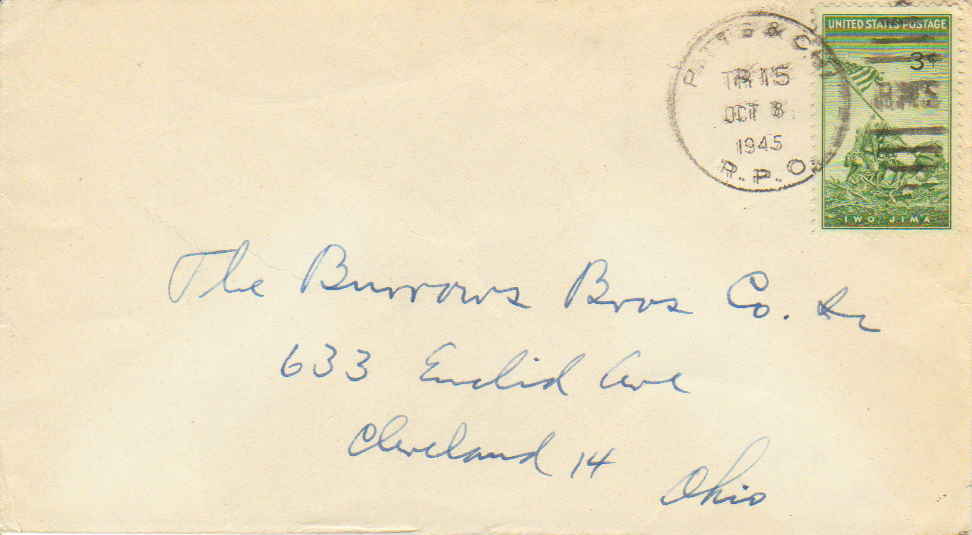 UNITED STATES POSTAGE
3¢
PITTS & 
TR 15
OCT 8
1945
R.P.O.
RMS
IWO JIMA
The Burrows Bros Co.
633 Euclid Ave
Cleveland 14
Ohio